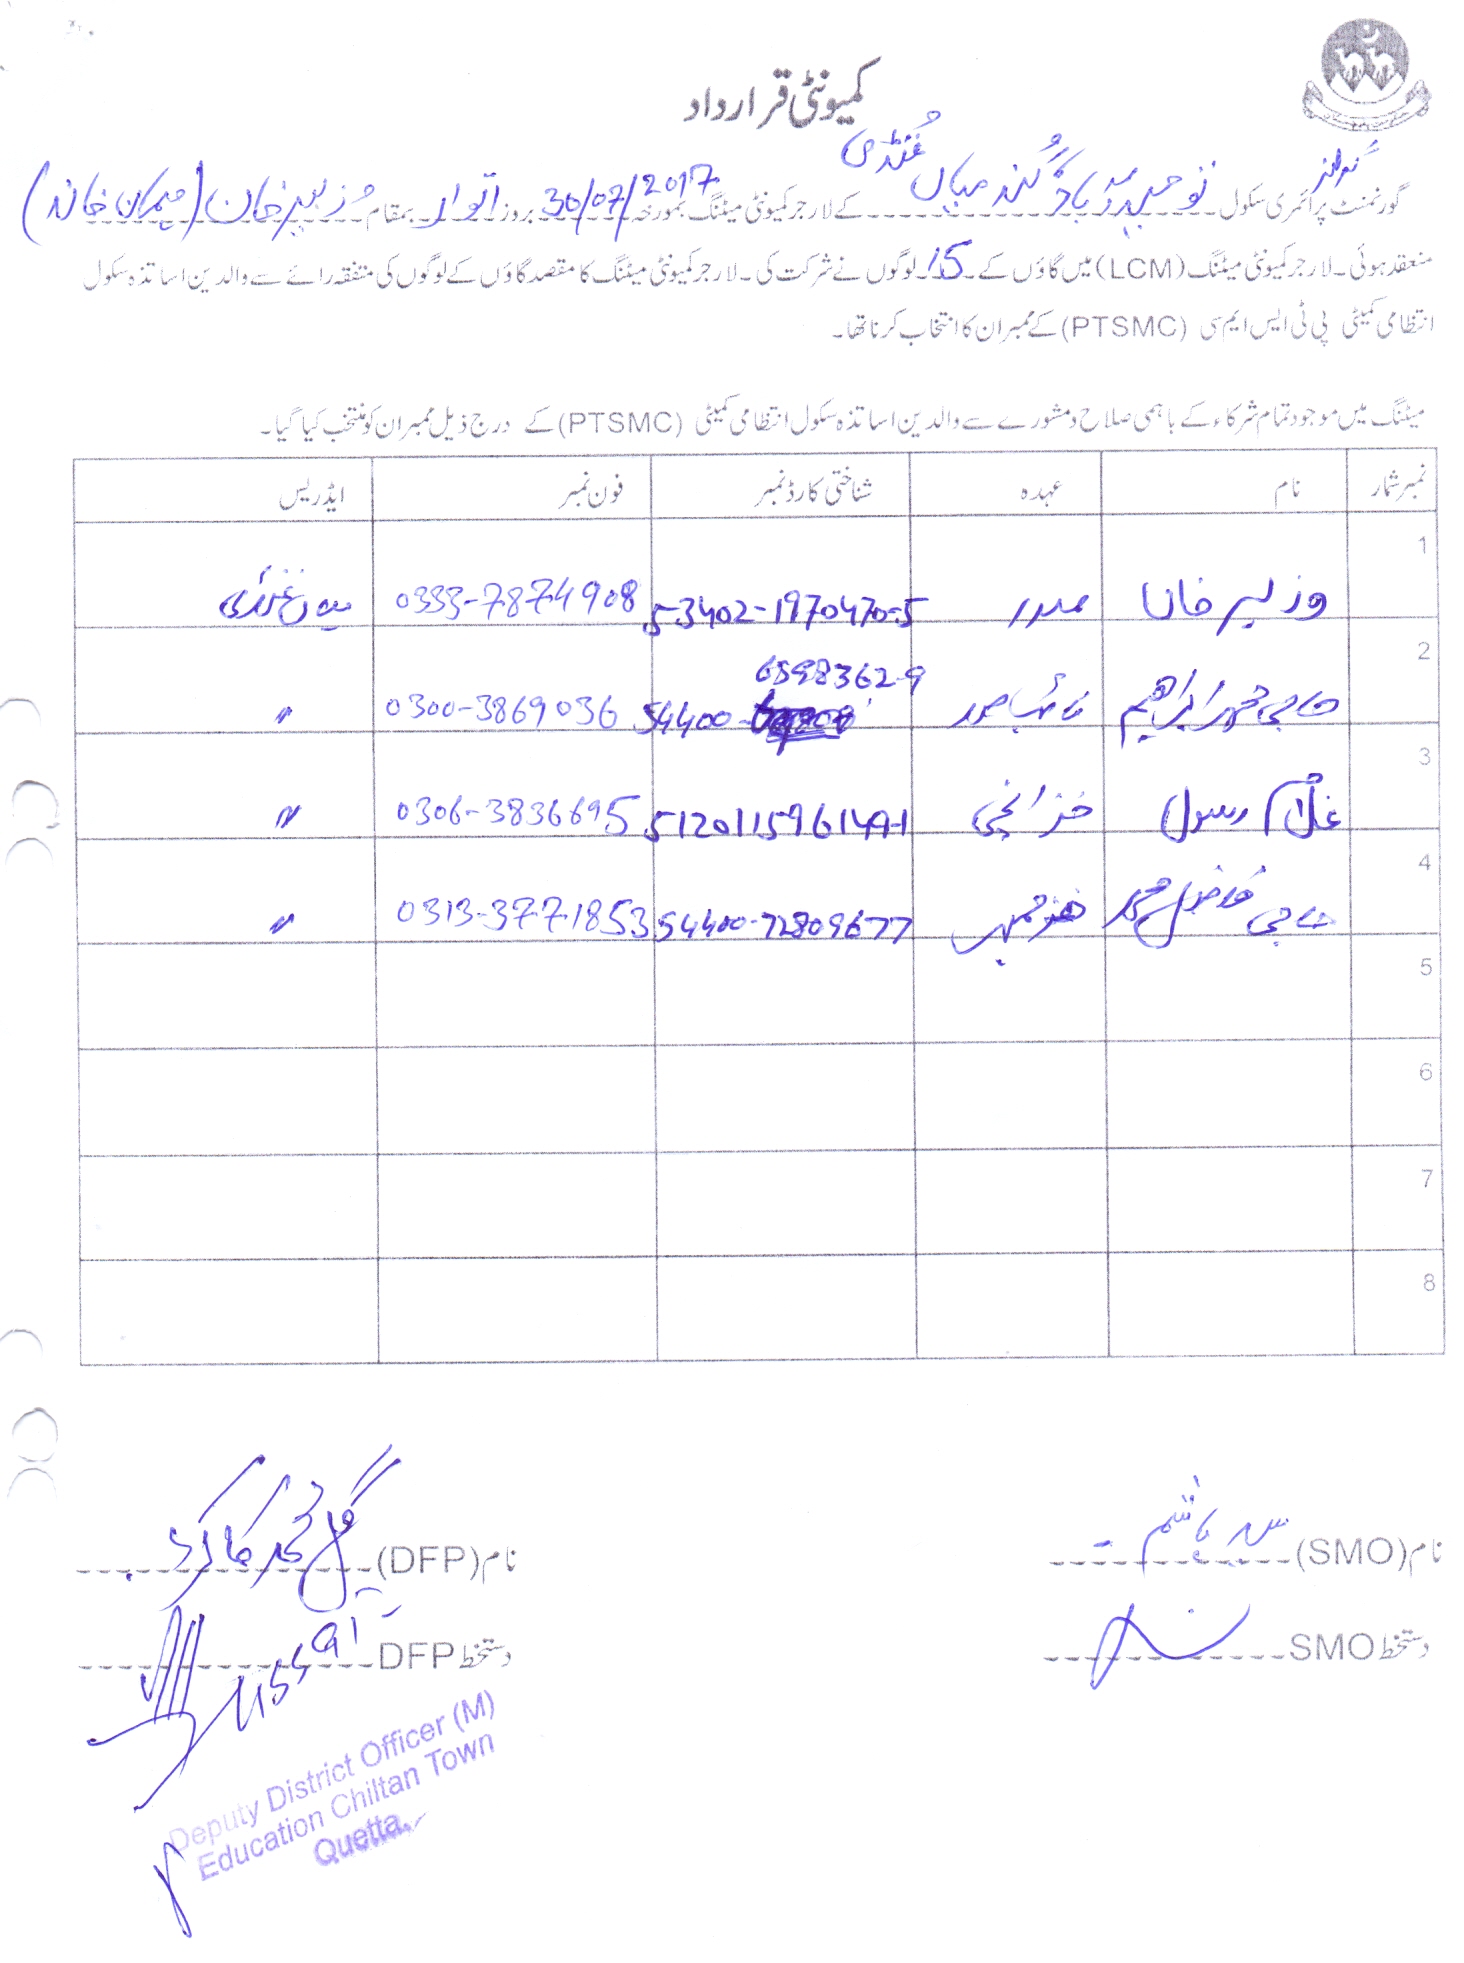 کمیونٹی قرارداد
گرلز
گورنمنٹ پرائمری سکول نو حیدر آباد میاں غنڈی کے لارجر کمیونٹی میٹنگ بمورخہ 30/07/2017 بروز اتوار بمقام وزیر خان (مہمان خانہ)
منعقد ہوئی۔ لارجر کمیونٹی میٹنگ (LCM) میں گاؤں کے 15 لوگوں نے شرکت کی۔ لارجر کمیونٹی میٹنگ کا مقصد گاؤں کے لوگوں کی متفقہ رائے سے والدین اساتذہ سکول
انتظامی کمیٹی پی ٹی ایس ایم سی (PTSMC) کے ممبران کا انتخاب کرنا تھا۔
میٹنگ میں موجود تمام شرکاء کے باہمی صلاح و مشورے سے والدین اساتذہ سکول انتظامی کمیٹی (PTSMC) کے درج ذیل ممبران کو منتخب کیا گیا۔
نمبر شمار نام عہدہ شناختی کارڈ نمبر فون نمبر ایڈریس
1 وزیر خان صدر 53402-1970470-5 0333-7874908 میاں غنڈی
2 حاجی محمد ابراہیم نائب صدر 54400-6598362-9 0300-3869036 〃
3 غلام رسول خزانچی 512011596149-1 0306-3836695 〃
4 حاجی محمد ممبر 54400-72809677 0313-3771853 〃
5
6
7
8
نام (SMO) سید ہاشم
نام (DFP) گل محمد کاکڑ
دستخط SMO
دستخط DFP
Deputy District Officer (M)
Education Chiltan Town
Quetta.